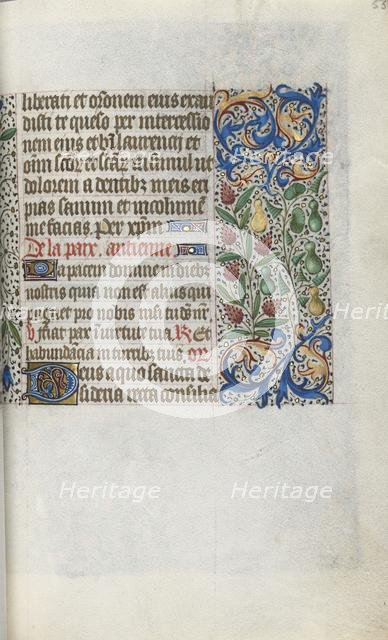 53
liberati et orōnem eius exau
disti te queso per intercessio
nem eius et bti laurencij et
oīm scōr
dolorem a dentibz meis et
pias sanum et incolumē
me facias. Per xpm
De la paix. antienne
Da pacem domine in diebz
nostris quia non est alius qui
pugnet pro nobis nisi tu dn̄r
v fiat pax in virtute tua R Et
habundācia in turribz tuis. or
Deus a quo sancta de
sideria recta consilia
Heritage
Heritage
Heritage
Heritage
Heritage
Heritage